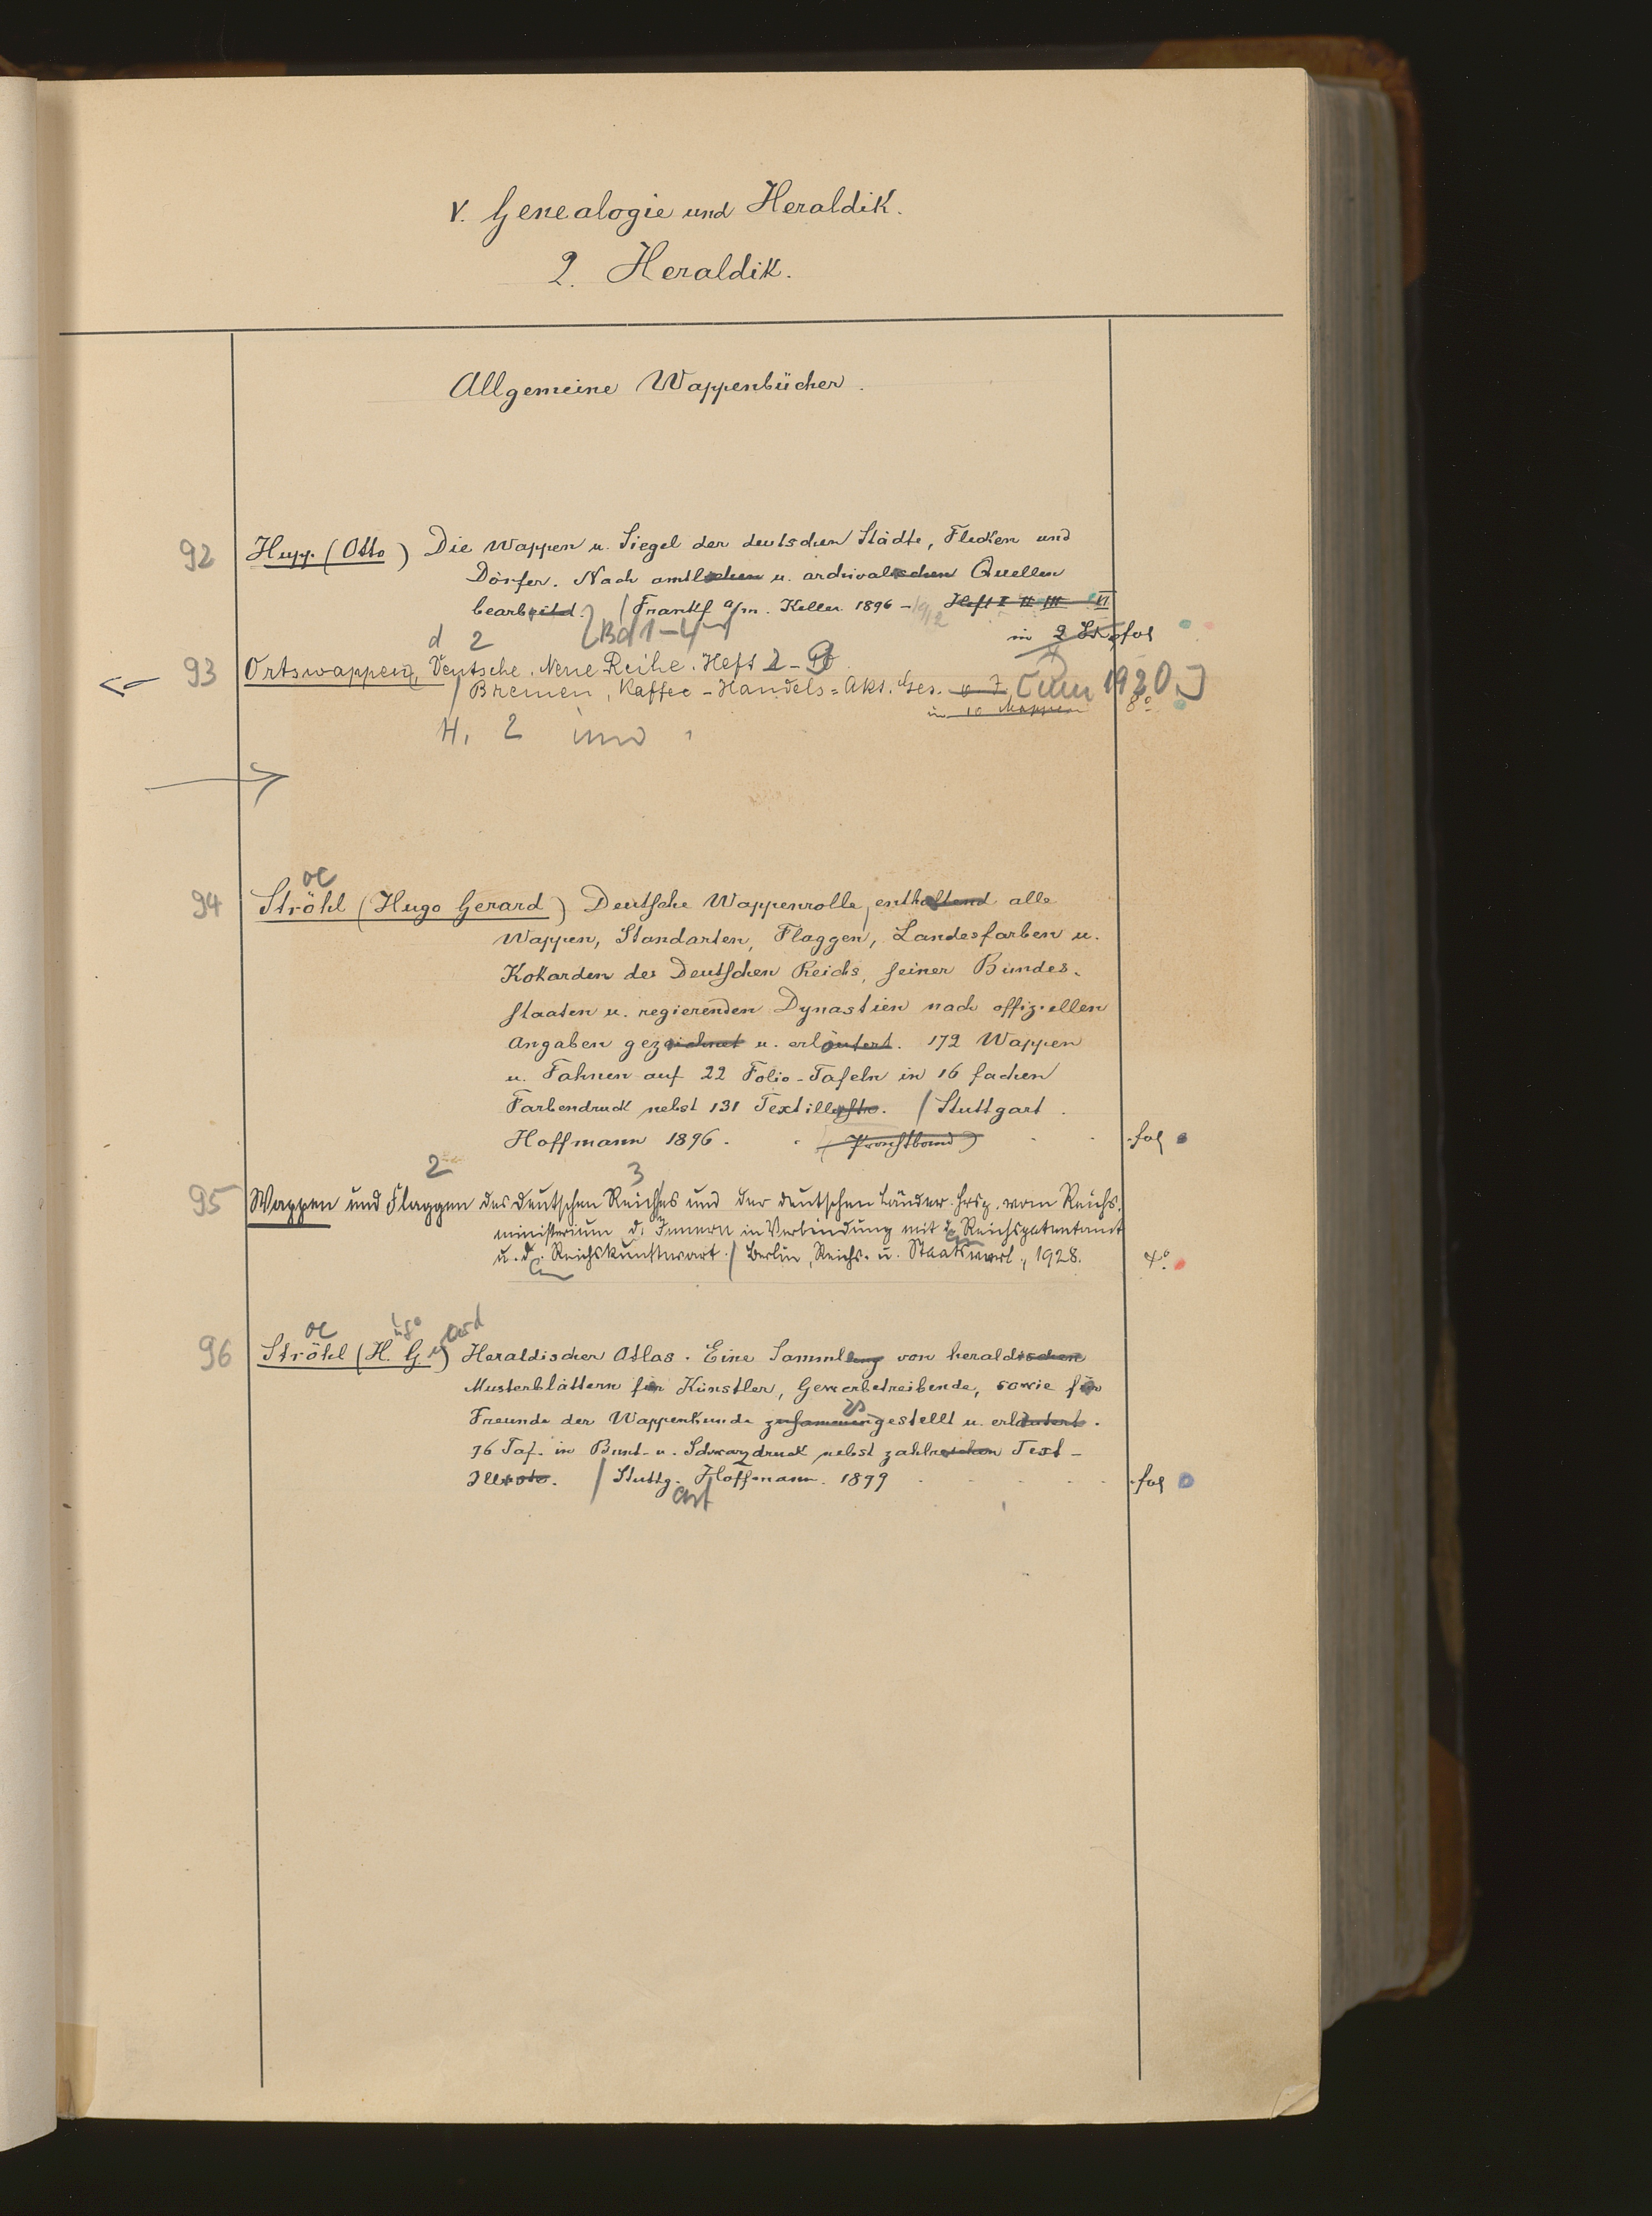 V. Genealogie und Heraldik.
2. Heraldik.
Allgemeine Wappenbücher.
92 Hupp (Otto) Die Wappen u. Siegel der deutschen Städte, Flecken und
Dörfer. Nach amtlschen u. archivalischen Quellen
bearbeitet. / Frankf a/m. Keller 1896 - 1912 Heft I II III VI
[Bd 1-4] in 2 fol
d 2
93 Ortswappen, Deutsche. Neue Reihe. Heft 2-
/ Bremen, Kaffee-Handels=Akt. Ges. o. J. [um 1920.]
in 10 Mappen 8°
H. 2 und
oe
94 Ströhl (Hugo Gerard) Deutsche Wappenrolle, enthaltend alle
Wappen, Standarten, Flaggen, Landesfarben u.
Kokarden des Deutschen Reichs, seiner Bundes-
staaten u. regierenden Dynastien nach offiziellen
Angaben gezeichnet u. erläutert. 172 Wappen
u. Fahnen auf 22 Folio-Tafeln in 16 fachen
Farbendruck nebst 131 Textillustr. / Stuttgart.
Hoffmann 1896. (Prachtband) fol
2 3
95 Wappen und Flaggen des deutschen Reiches und der deutschen Länder. Hrsg. vom Reichs-
ministerium d. Innern in Verbindung mit d. Reichspatentamt
u. d. Reichskunstwart. / Berlin, Reichs- u. Staatsverl., 1928. 4°
oe ugo erard
96 Ströhl (H. G.) Heraldischer Atlas. Eine Sammlung von heraldischen
Musterblättern für Künstler, Gewerbetreibende, sowie für
Freunde der Wappenkunde zusammengestellt u. erläutert.
76 Taf. in Bunt- u. Schwarzdruck nebst zahlreichen Text-
Illustr. / Stuttg. Hoffmann. 1899 fol
art